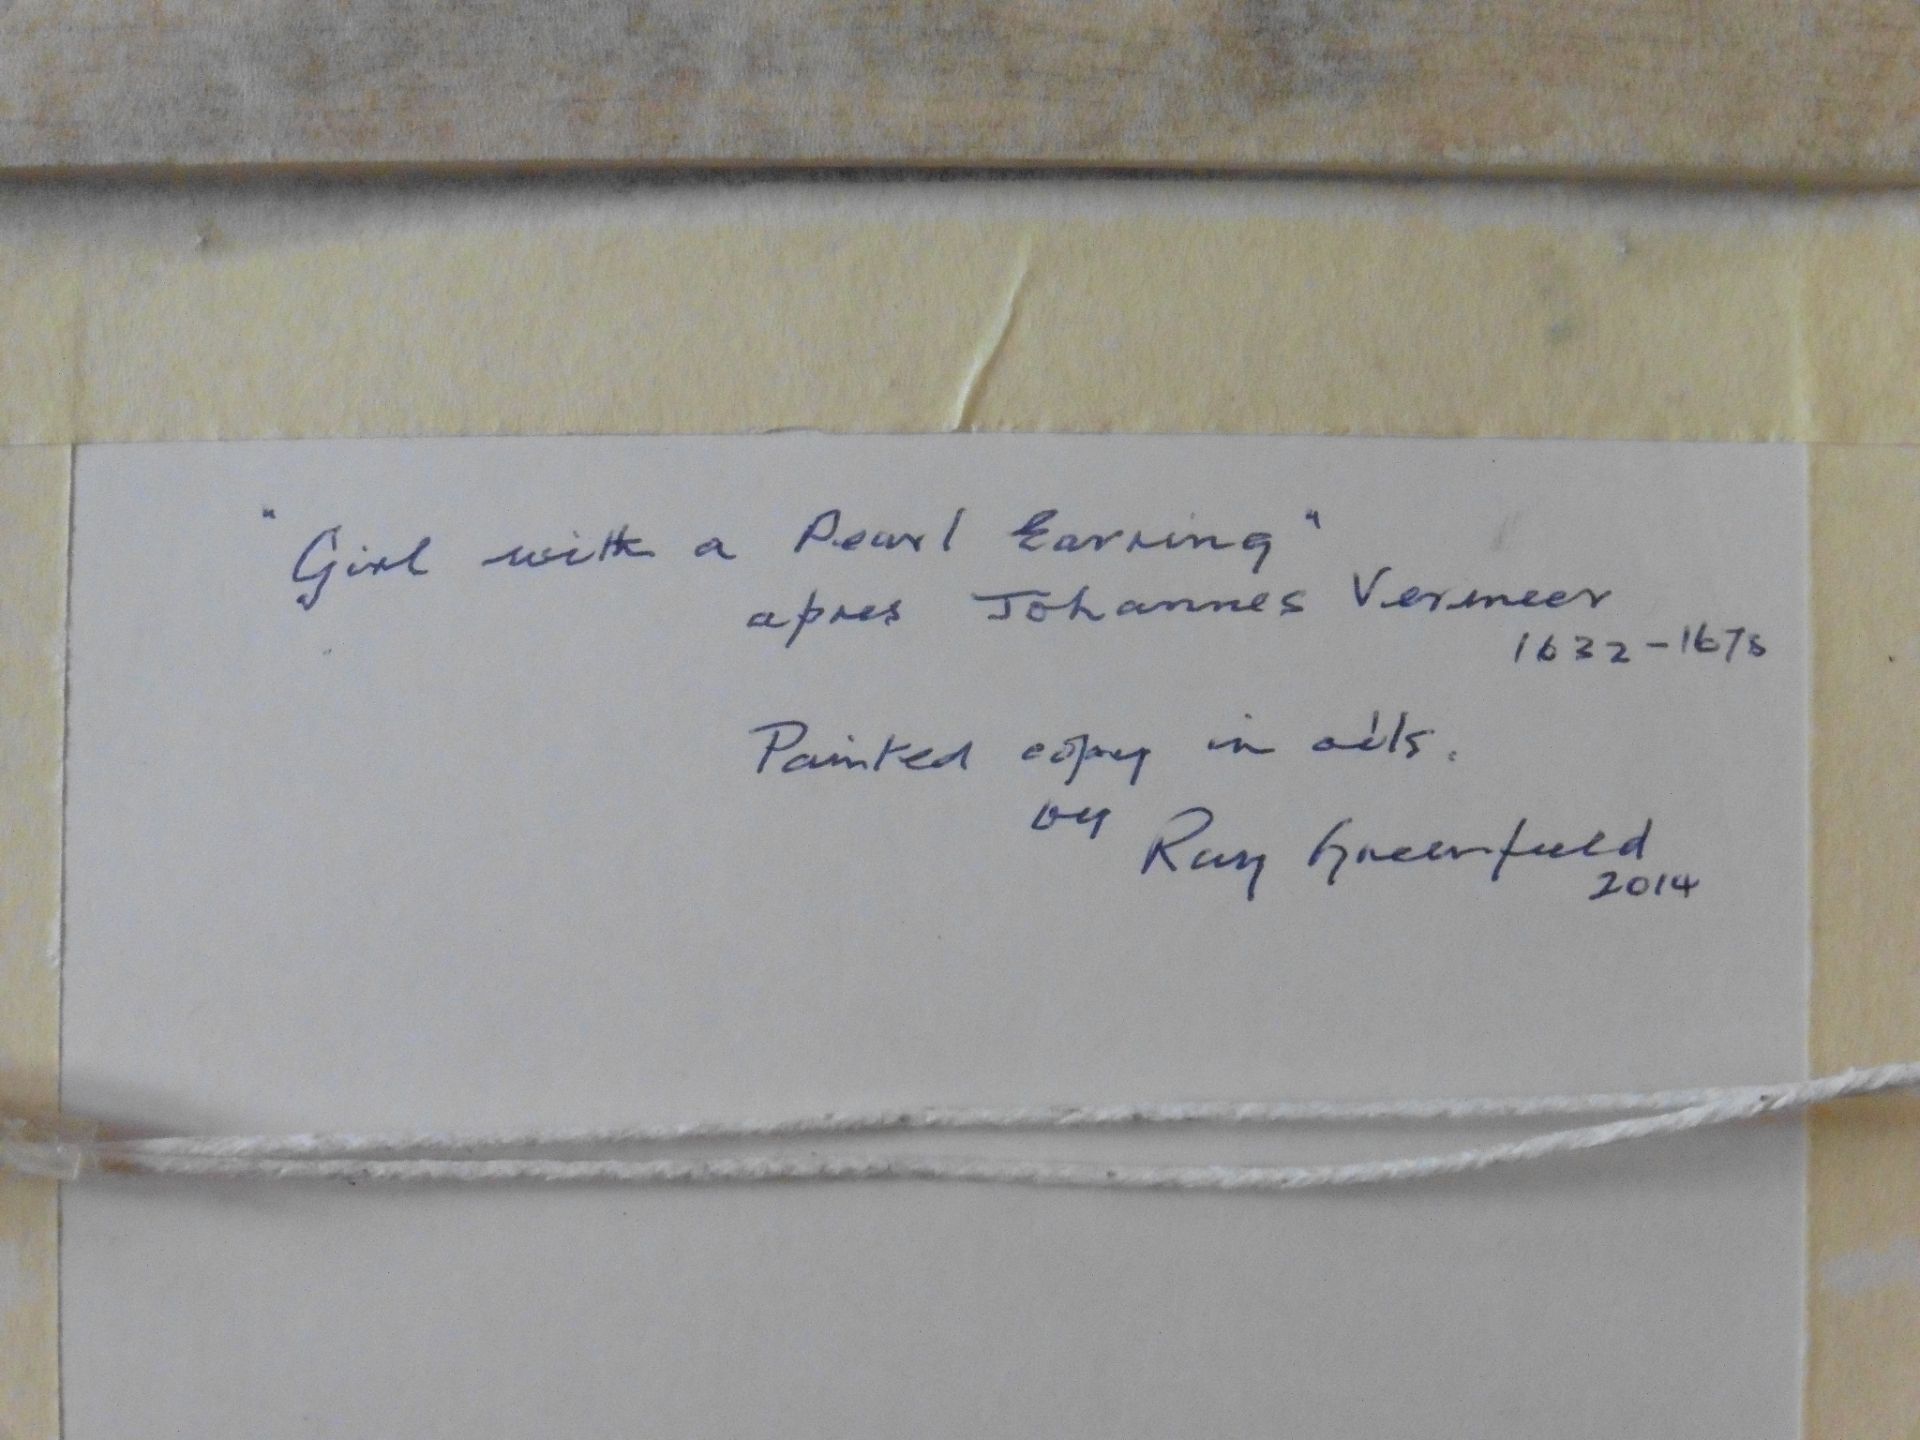 "Girl with a Pearl Earring"
apres Johannes Vermeer
1632-1675
Painted copy in oils.
by Ray Greenfield
2014